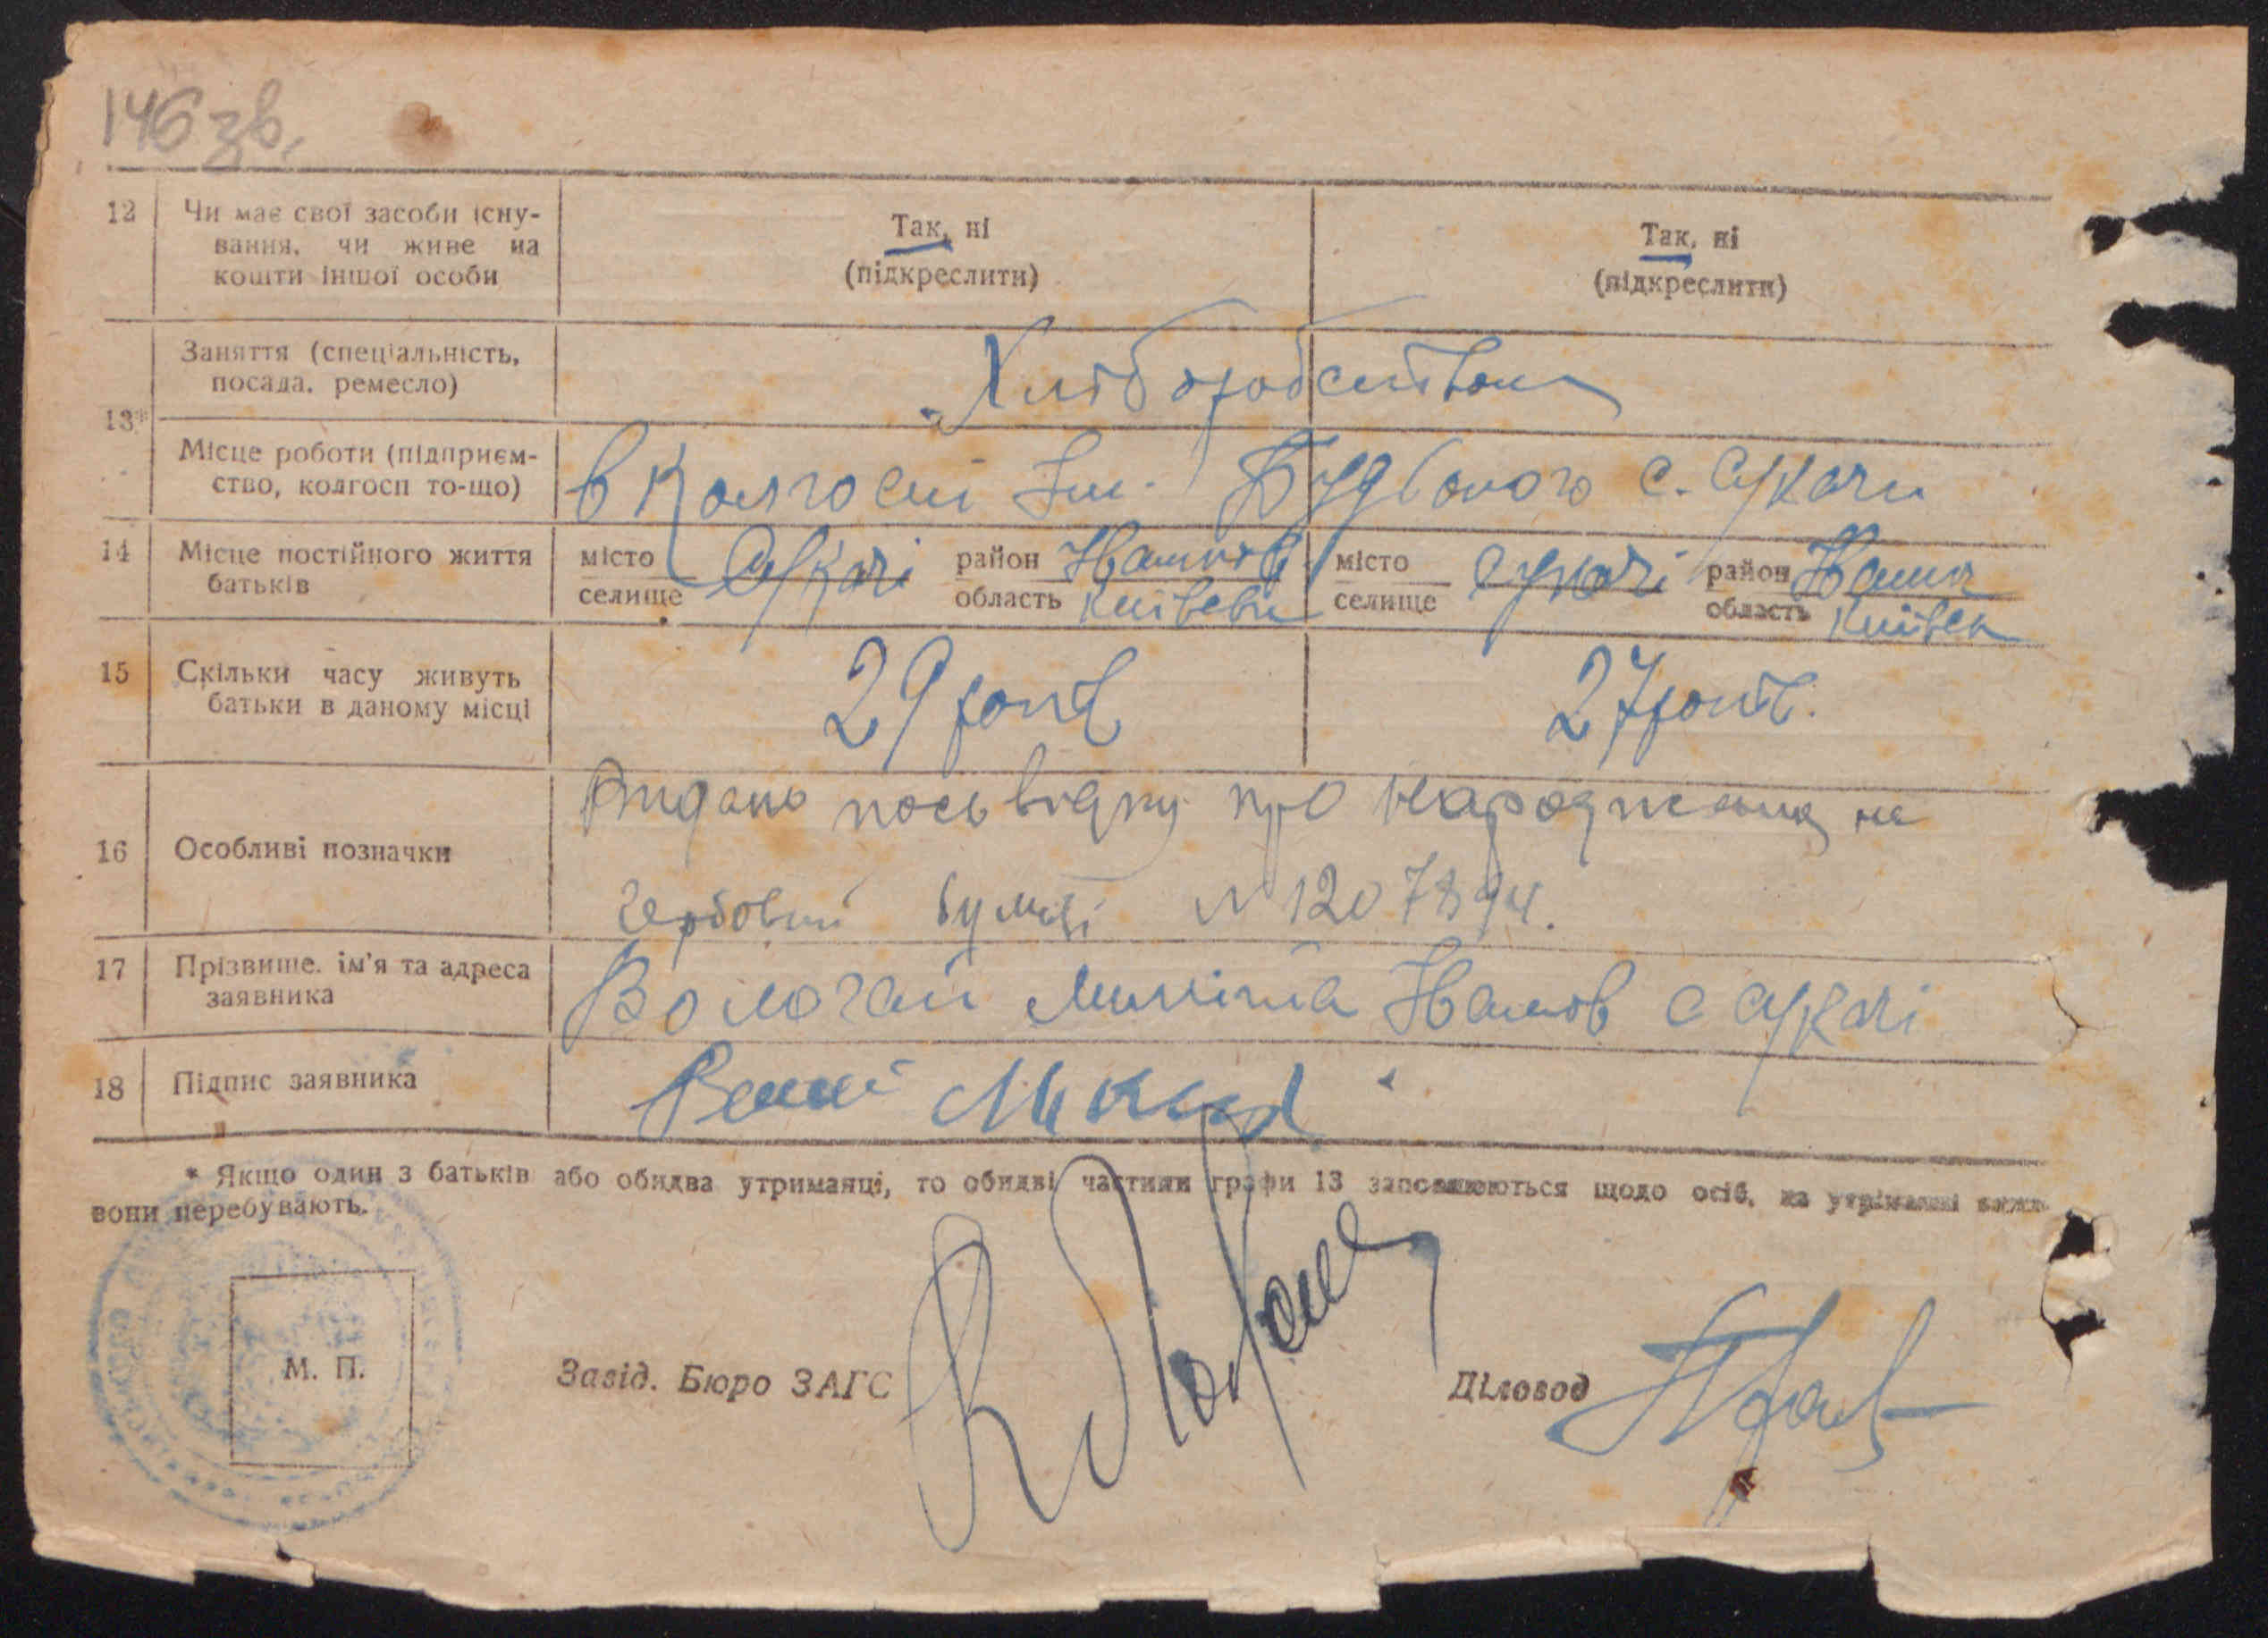 146 зв.
12 Чи має свої засоби існу-
вання, чи живе на
кошти іншої особи
Так, ні
(підкреслити)
Так, ні
(підкреслити)
13*
Заняття (спеціальність,
посада, ремесло)
Хліборобством
Місце роботи (підприєм-
ство, колгосп то-що)
в Колгоспі Ім. Будьоного с. Сукачи
14 Місце постійного життя
батьків
місто
селище
Сукачі
район
область
Київськ
місто
селище
Сукачі
район
область
Київськ
15 Скільки часу живуть
батьки в даному місці
29 років
27 років.
16 Особливі позначки
Видано посьвідку про народження на
гербовий бумазі № 1207894.
17 Прізвище, ім'я та адреса
заявника
Микита с Сукачі
18 Підпис заявника
* Якщо один з батьків або обидва утриманці, то обидві частини графи 13 заповнюються щодо осіб, на утриманні яких
вони перебувають.
М. П.
Завід. Бюро ЗАГС
Діловод